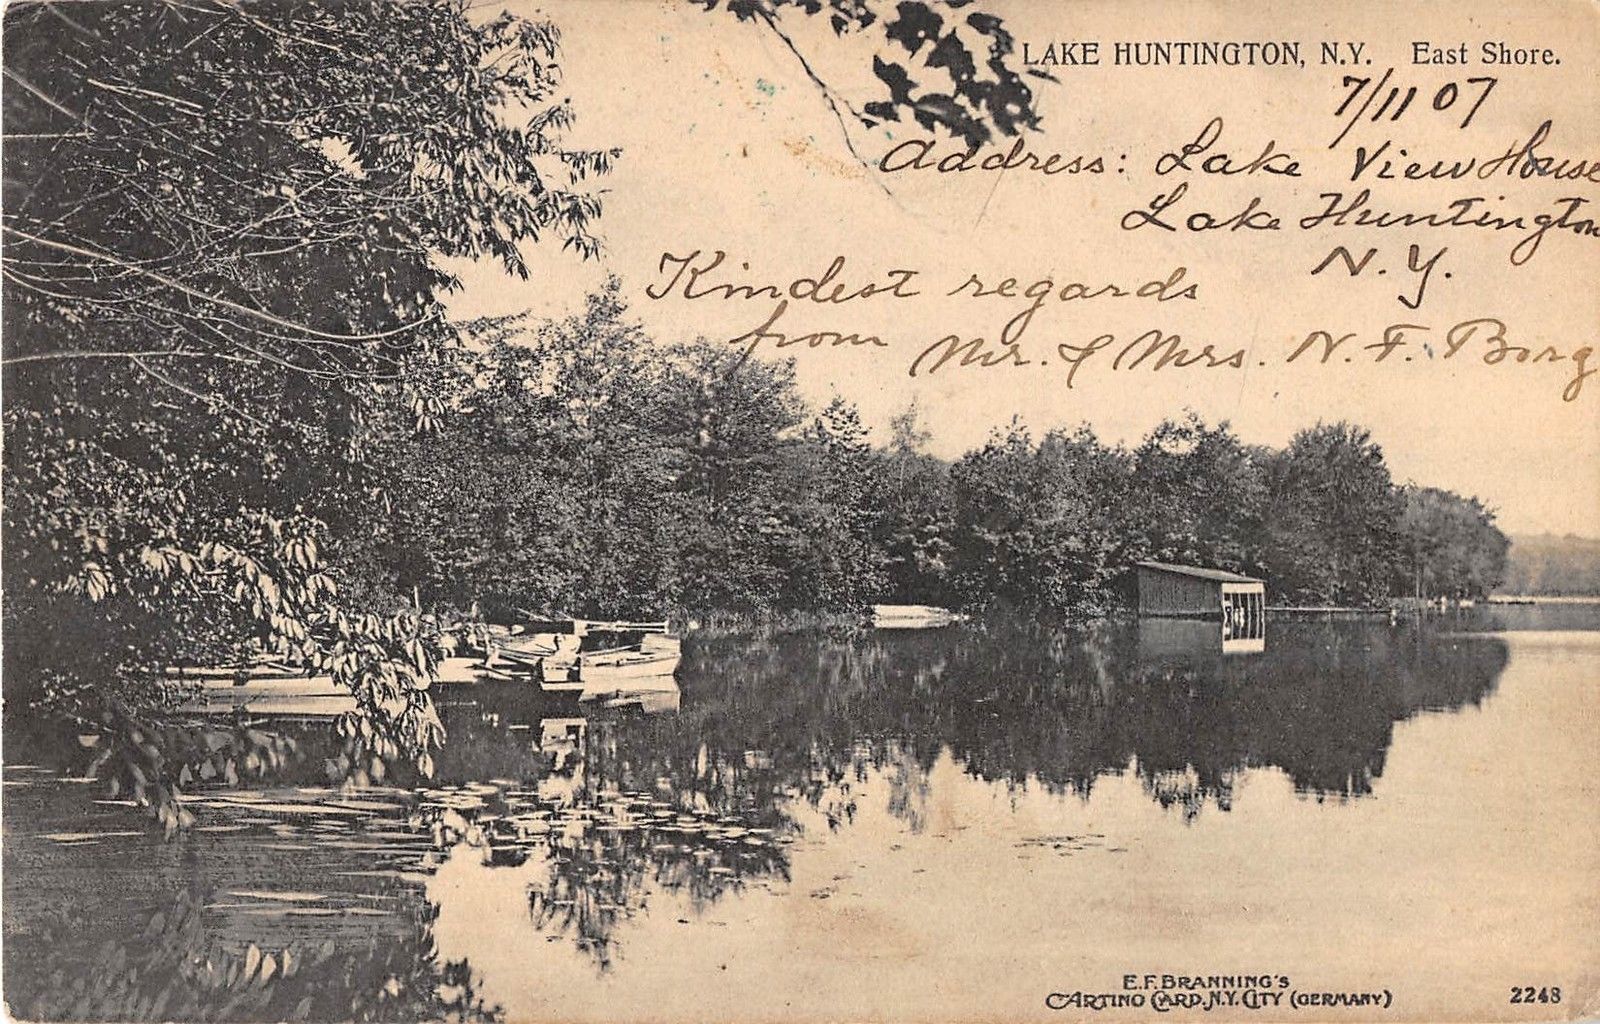 LAKE HUNTINGTON, N.Y. East Shore.
7/11 07
Address: Lake View House
Lake Huntington
N.Y.
Kindest regards
from Mr. & Mrs. N. F. Borg
E.F. BRANNING'S
"ARTINO CARD. N.Y. CITY (GERMANY)
2248